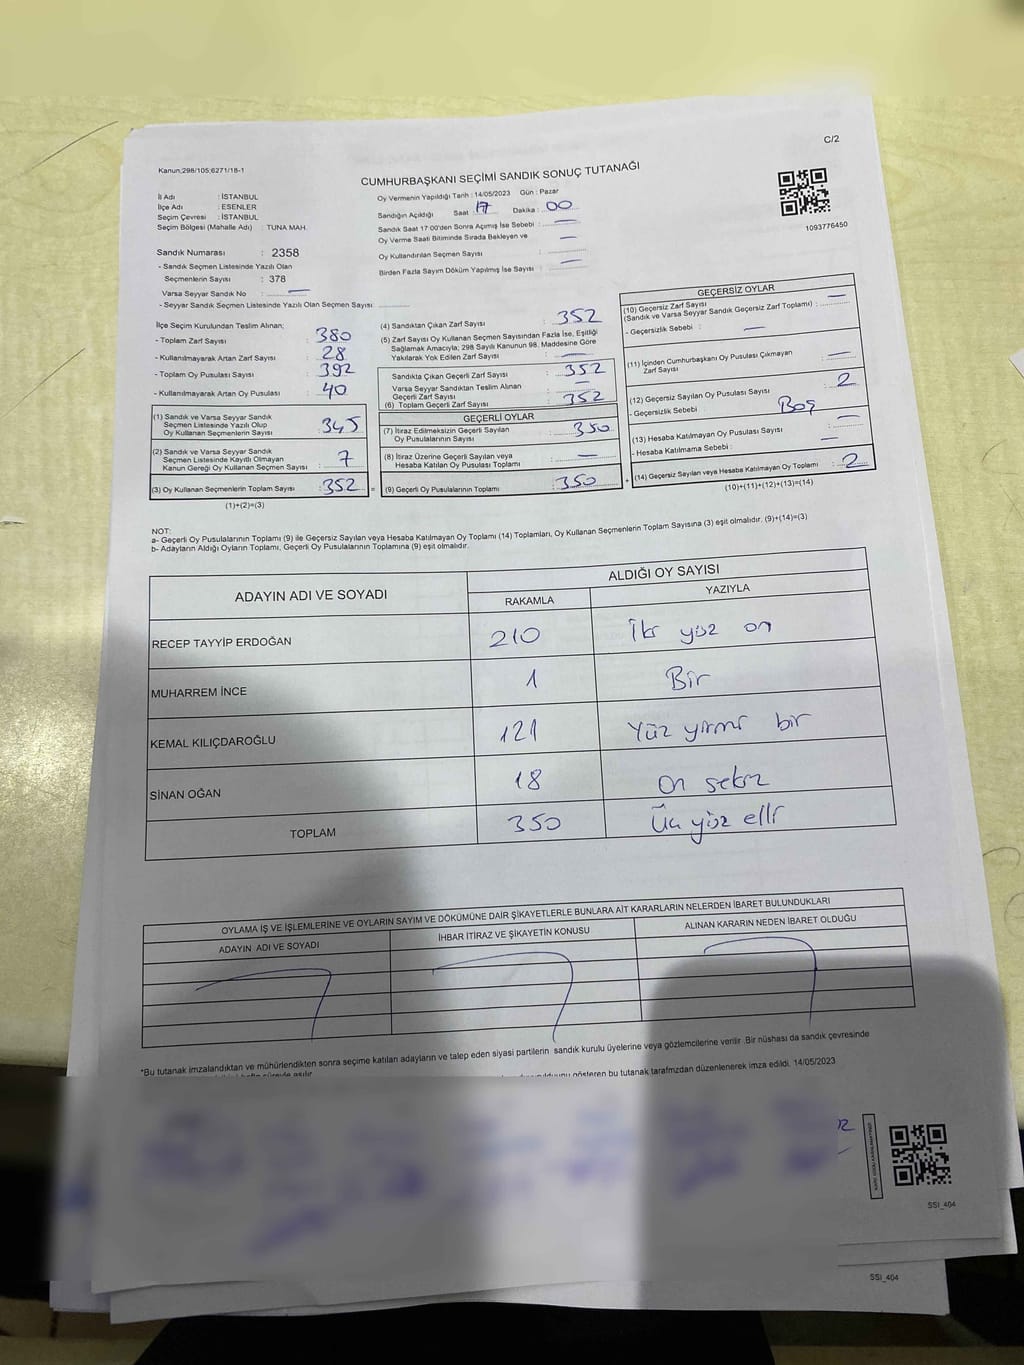 C/2
Kanun;298/105;6271/18-1
CUMHURBAŞKANI SEÇİMİ SANDIK SONUÇ TUTANAĞI
İl Adı : İSTANBUL
İlçe Adı : ESENLER
Seçim Çevresi : İSTANBUL
Seçim Bölgesi (Mahalle Adı) : TUNA MAH.
Sandık Numarası : 2358
- Sandık Seçmen Listesinde Yazılı Olan
Seçmenlerin Sayısı : 378
Varsa Seyyar Sandık No : —
- Seyyar Sandık Seçmen Listesinde Yazılı Olan Seçmen Sayısı:
Oy Vermenin Yapıldığı Tarih : 14/05/2023 Gün : Pazar
Sandığın Açıldığı Saat : 17 Dakika : 00
Sandık Saat 17:00'den Sonra Açılmış İse Sebebi : —
Oy Verme Saati Bitiminde Sırada Bekleyen ve
Oy Kullandırılan Seçmen Sayısı : —
Birden Fazla Sayım Döküm Yapılmış İse Sayısı : —
1093776450
İlçe Seçim Kurulundan Teslim Alınan;
- Toplam Zarf Sayısı : 380
- Kullanılmayarak Artan Zarf Sayısı : 28
- Toplam Oy Pusulası Sayısı : 392
- Kullanılmayarak Artan Oy Pusulası : 40
(1) Sandık ve Varsa Seyyar Sandık
Seçmen Listesinde Yazılı Olup
Oy Kullanan Seçmenlerin Sayısı : 345
(2) Sandık ve Varsa Seyyar Sandık
Seçmen Listesinde Kayıtlı Olmayan
Kanun Gereği Oy Kullanan Seçmen Sayısı : 7
(3) Oy Kullanan Seçmenlerin Toplam Sayısı : 352 =
(1)+(2)=(3)
(4) Sandıktan Çıkan Zarf Sayısı : 352
(5) Zarf Sayısı Oy Kullanan Seçmen Sayısından Fazla İse, Eşitliği
Sağlamak Amacıyla; 298 Sayılı Kanunun 98. Maddesine Göre
Yakılarak Yok Edilen Zarf Sayısı : —
Sandıkta Çıkan Geçerli Zarf Sayısı : 352
Varsa Seyyar Sandıktan Teslim Alınan
Geçerli Zarf Sayısı : —
(6) Toplam Geçerli Zarf Sayısı : 352
GEÇERLİ OYLAR
(7) İtiraz Edilmeksizin Geçerli Sayılan
Oy Pusulalarının Sayısı : 350
(8) İtiraz Üzerine Geçerli Sayılan veya
Hesaba Katılan Oy Pusulası Toplamı : —
(9) Geçerli Oy Pusulalarının Toplamı : 350 +
GEÇERSİZ OYLAR
(10) Geçersiz Zarf Sayısı
(Sandık ve Varsa Seyyar Sandık Geçersiz Zarf Toplamı) : —
- Geçersizlik Sebebi : —
(11) İçinden Cumhurbaşkanı Oy Pusulası Çıkmayan
Zarf Sayısı : —
(12) Geçersiz Sayılan Oy Pusulası Sayısı : 2
- Geçersizlik Sebebi : Boş
(13) Hesaba Katılmayan Oy Pusulası Sayısı : —
- Hesaba Katılmama Sebebi : —
(14) Geçersiz Sayılan veya Hesaba Katılmayan Oy Toplamı : 2
(10)+(11)+(12)+(13)=(14)
NOT:
a- Geçerli Oy Pusulalarının Toplamı (9) ile Geçersiz Sayılan veya Hesaba Katılmayan Oy Toplamı (14) Toplamları, Oy Kullanan Seçmenlerin Toplam Sayısına (3) eşit olmalıdır. (9)+(14)=(3)
b- Adayların Aldığı Oyların Toplamı, Geçerli Oy Pusulalarının Toplamına (9) eşit olmalıdır.
ADAYIN ADI VE SOYADI ALDIĞI OY SAYISI
RAKAMLA YAZIYLA
RECEP TAYYİP ERDOĞAN 210 İki yüz on
MUHARREM İNCE 1 Bir
KEMAL KILIÇDAROĞLU 121 Yüz yirmi bir
SİNAN OĞAN 18 On sekiz
TOPLAM 350 Üç yüz elli
OYLAMA İŞ VE İŞLEMLERİNE VE OYLARIN SAYIM VE DÖKÜMÜNE DAİR ŞİKAYETLERLE BUNLARA AİT KARARLARIN NELERDEN İBARET BULUNDUKLARI
ADAYIN ADI VE SOYADI İHBAR İTİRAZ VE ŞİKAYETİN KONUSU ALINAN KARARIN NEDEN İBARET OLDUĞU
*Bu tutanak imzalandıktan ve mühürlendikten sonra seçime katılan adayların ve talep eden siyasi partilerin sandık kurulu üyelerine veya gözlemcilerine verilir .Bir nüshası da sandık çevresinde
gösteren bu tutanak tarafımızdan düzenlenerek imza edildi. 14/05/2023
SSI_404
SSI_404